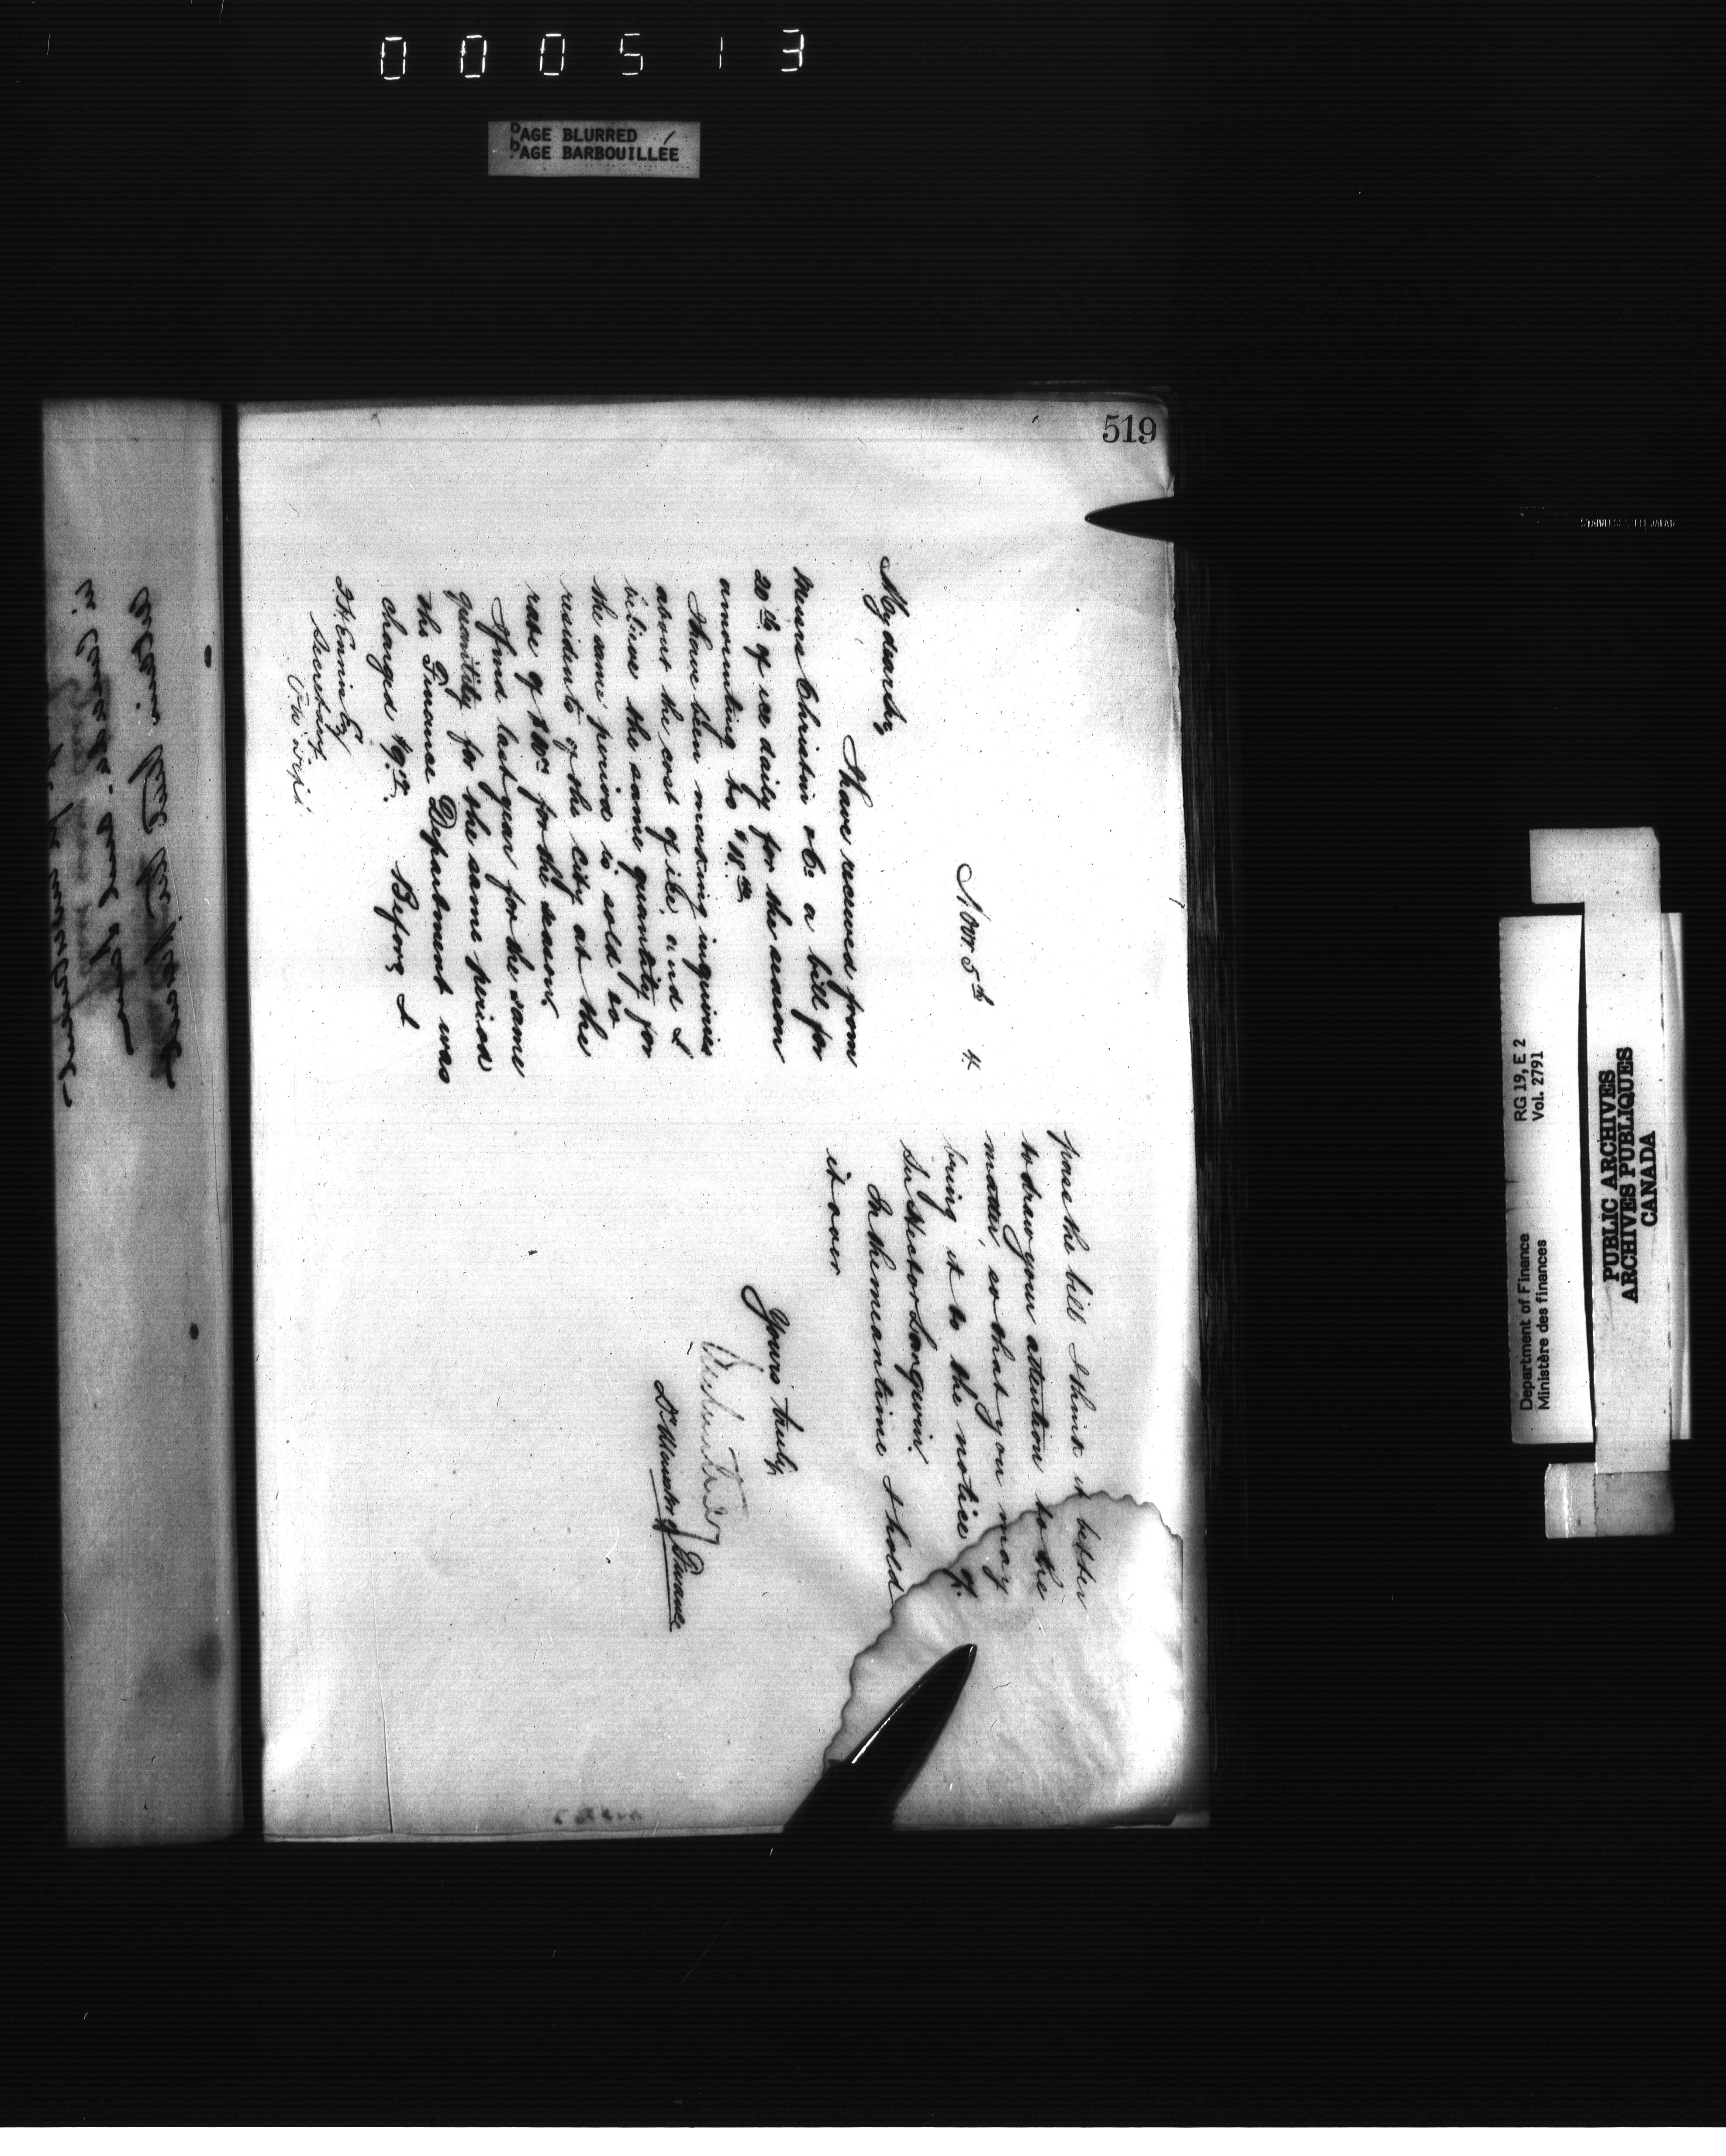 000513
PAGE BLURRED
PAGE BARBOUILLÉE
519
Novr 5th 4
My dear Sir,
I have received from
Messrs Christin & Co a bill for
20 lb of ice daily for the season
amounting to $18.00
I have been making inquiries
about the cost of ice, and I
believe the same quantity for
the same period is sold to
residents of the City at the
rate of $10.00 for the season.
I find last year for the same
quantity for the same period
the Finance Department was
charged $9.
Before I
Esq
Secretary
pass the bill I think it better
to draw your attention to the
matter, so that you may
bring it to the notice of
Sir Hector Langevin.
In the meantime I hold
it over
Yours truly,
Dr Minister of Finance
RG 19, E 2
Vol. 2791
Department of Finance
Ministère des finances
PUBLIC ARCHIVES
ARCHIVES PUBLIQUES
CANADA